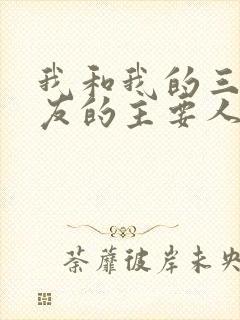 我和我的三
友的主要人
荼蘼彼岸未央